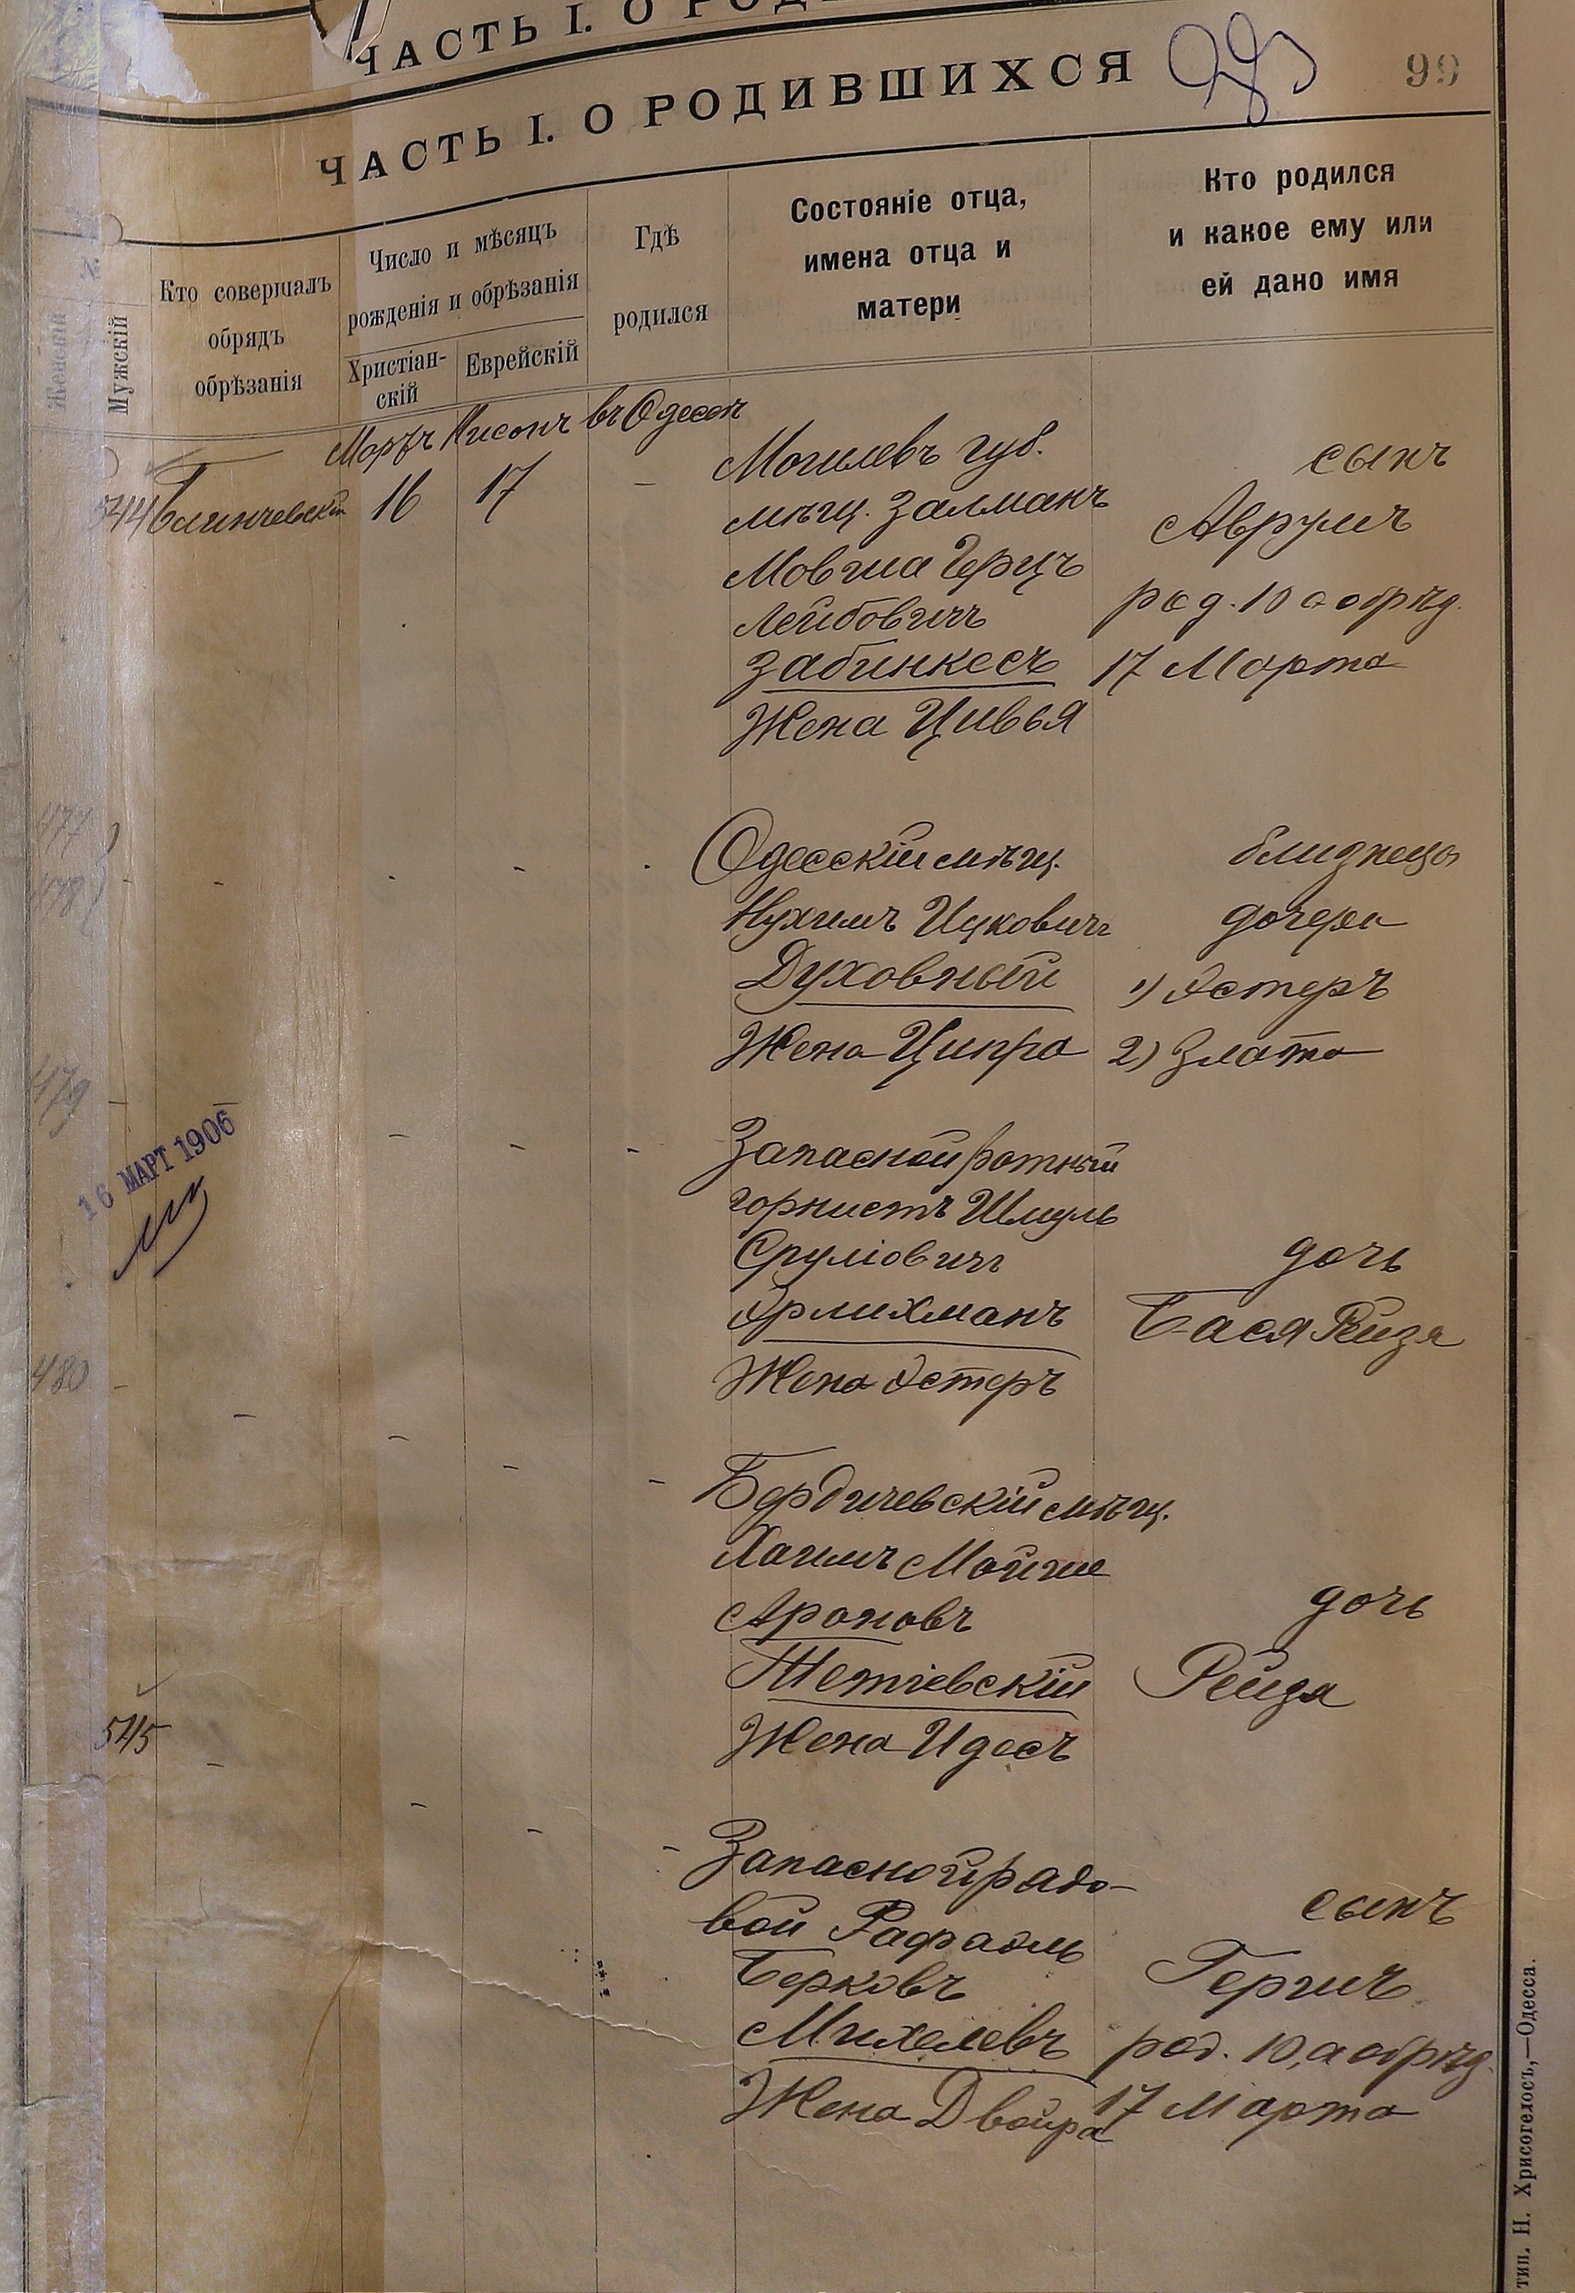 ЧАСТЬ I. О РОД
ЧАСТЬ I. О РОДИВШИХСЯ
99
№
Женскій
Мужскій
Кто совершалъ
обрядъ
обрѣзанія
Число и мѣсяцъ
рожденія и обрѣзанія
Христіан-
скій
Еврейскій
Гдѣ
родился
Состояніе отца,
имена отца и
матери
Кто родился
и какое ему или
ей дано имя
Мартъ Нисонъ въ Одессѣ
544 Блинчевскій 16 17 -
Могилевъ губ.
мѣщ. Залманъ
Мовша Герцъ
Лейбовичъ
Забинкесъ
Жена Цивья
сынъ
Аврумъ
род. 10 а обрѣз.
17 Марта
477
478
Одесскій мѣщ.
Нухимъ Ицковичъ
Духовный
Жена Ципра
близнецы
дочери
1) Эстеръ
2) Злата
479
16 МАРТ 1906
Запасной ротный
горнистъ Шмуль
Сруліовичъ
Эрлихманъ
Жена Эстеръ
дочь
Бася Рейзя
480
Бердичевскій мѣщ.
Хаимъ Мойше
Ароновъ
Тетіевскій
Жена Идесъ
дочь
Рейзя
545
Запасной рядо-
вой Рафаэль
Берковъ
Михелевъ
Жена Двойра
сынъ
Гершъ
род. 10, а обрѣз.
17 Марта
тип. Н. Хрисогелосъ,—Одесса.